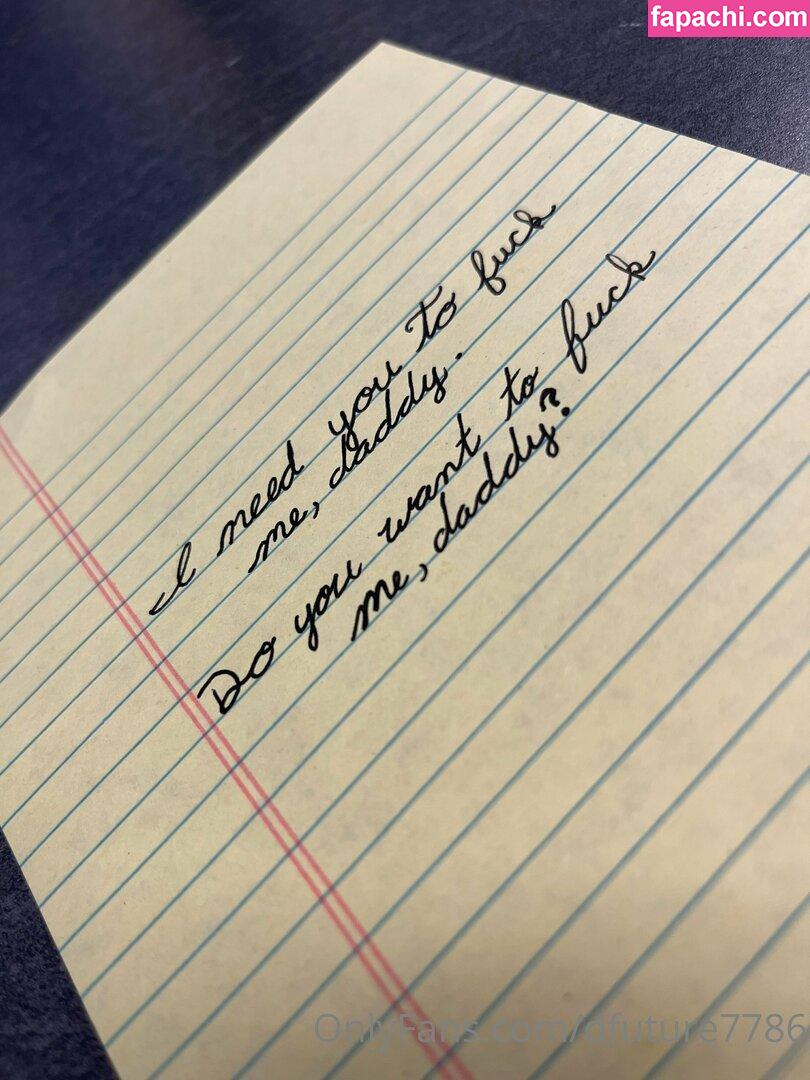 fapachi.com
I need you to fuck
me, daddy.
Do you want to fuck
me, daddy?
OnlyFans.com/dfuture7786